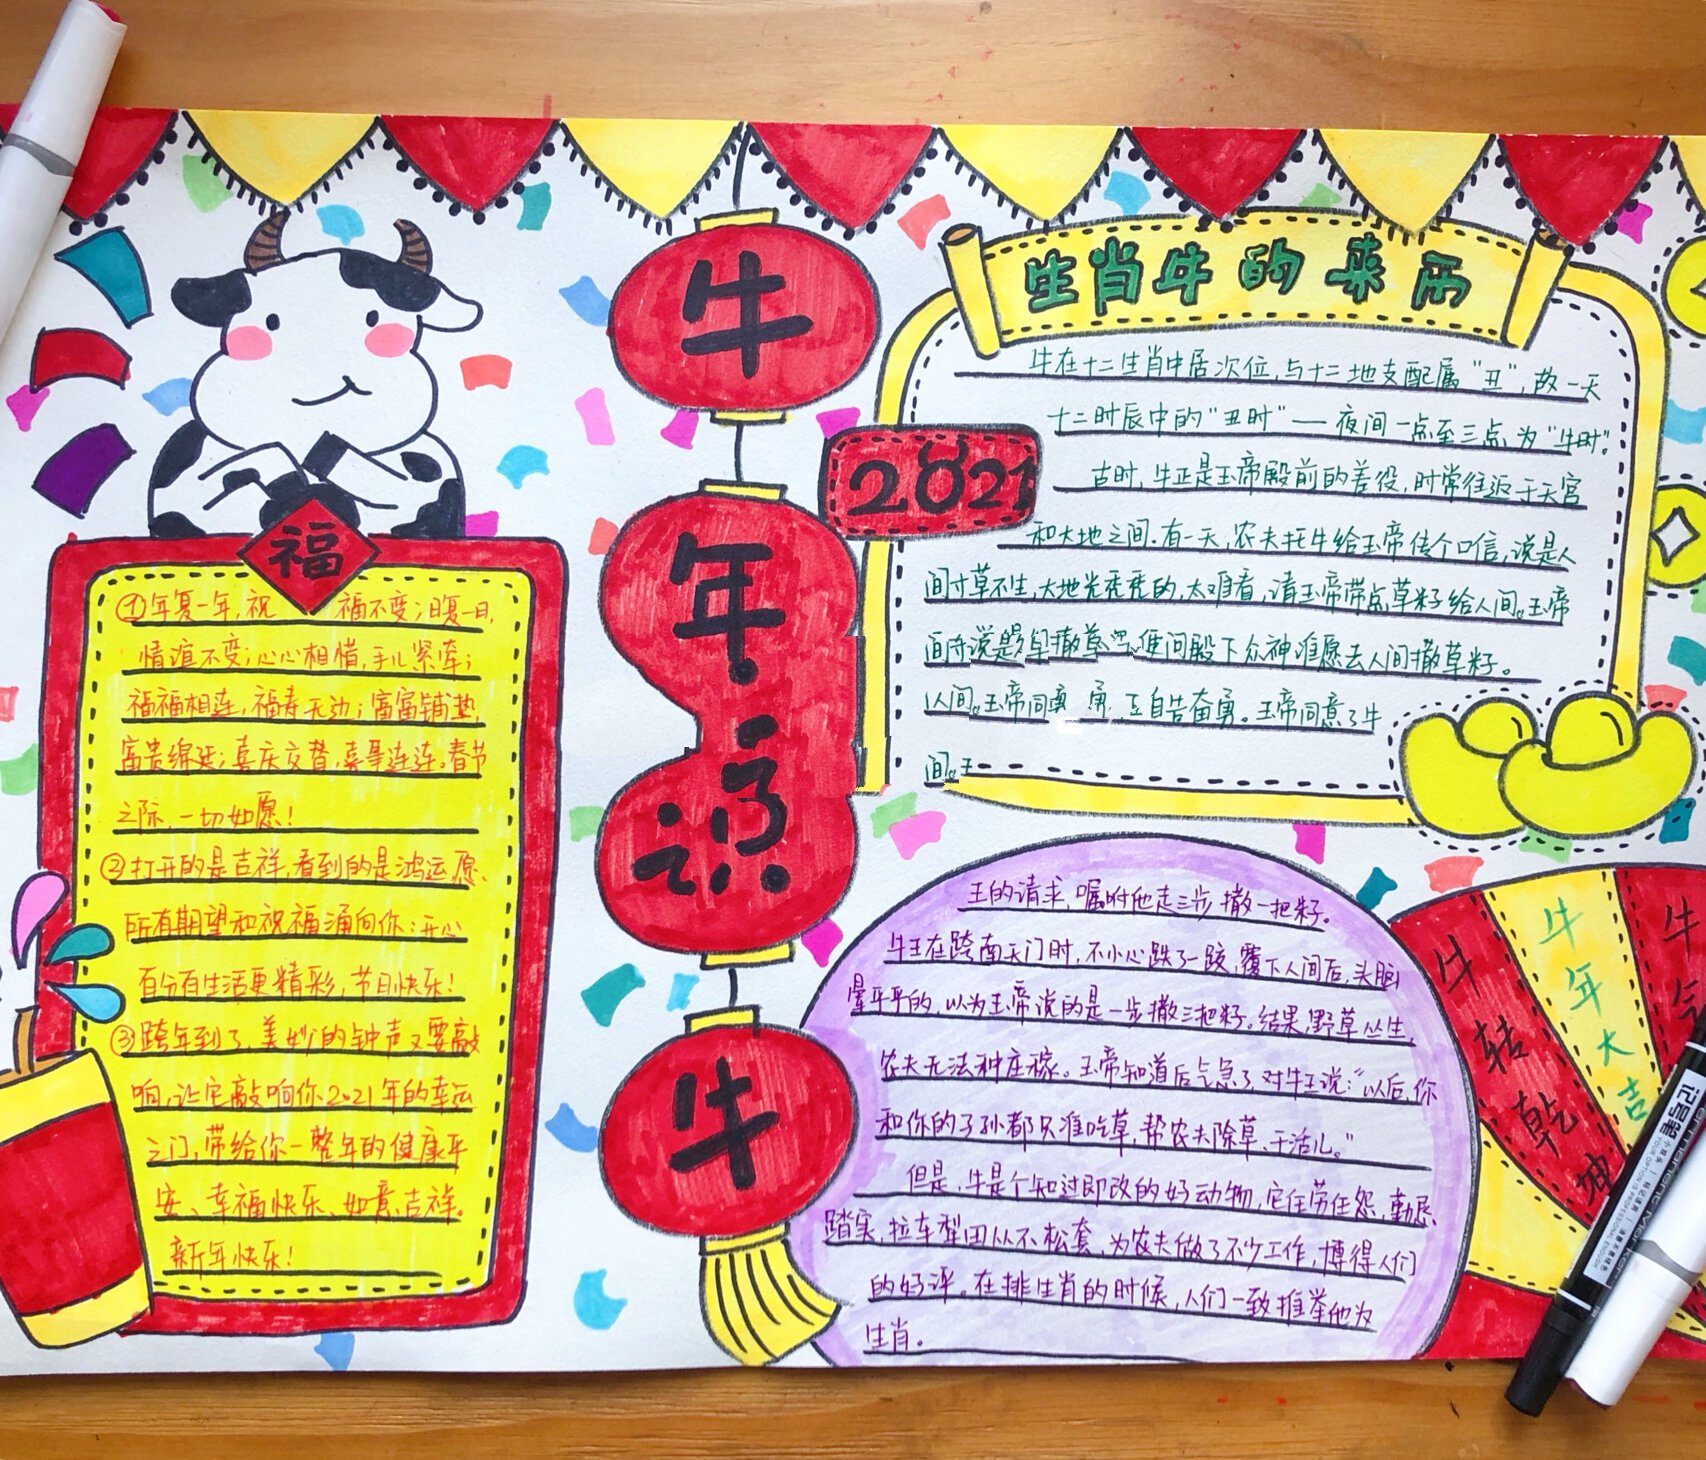 牛
年
牛
2021
福
①年复一年,祝 福不变;日复一日,
情谊不变;心心相惜,手儿紧牵;
福福相连,福寿无边;富富铺垫,
富贵绵延;喜庆交替,喜事连连。春节
之际,一切如愿!
②打开的是吉祥,看到的是鸿运,愿、
所有期望和祝福涌向你:开心
百分百生活更精彩,节日快乐!
③跨年到了,美妙的钟声又要敲
响,让它敲响你2021年的幸运
之门,带给你一整年的健康平
安、幸福快乐、如意吉祥。
新年快乐!
生肖牛的来历
牛在十二生肖中居次位,与十二地支配属"丑",故一天
十二时辰中的"丑时"——夜间一点至三点为"牛时"。
古时,牛正是玉帝殿前的差役,时常往返于天宫
和大地之间.有一天,农夫托牛给玉帝传个口信,说是人
间寸草不生,大地光秃秃的,太难看,请玉帝带点草籽给人间。玉帝
问殿下众神谁愿去人间撒草籽。
以人间。玉帝同 自告奋勇。玉帝同意了牛
间。
王的请求,嘱咐他走三步撒一把籽。
牛王在跨南天门时,不小心跌了一跤,覆下人间后,头脑
晕乎乎的,以为玉帝说的是一步撒三把籽。结果,野草丛生,
农夫无法种庄稼。玉帝知道后气急了对牛王说:"以后,你
和你的子孙都只准吃草,帮农夫除草、干活儿。"
但是,牛是个知过即改的好动物,它任劳任怨,勤恳、
踏实,拉车犁田从不松套,为农夫做了不少工作,博得人们
的好评。在排生肖的时候,人们一致推举他为
生肖。
牛转乾坤
牛年大吉
牛气
记号笔